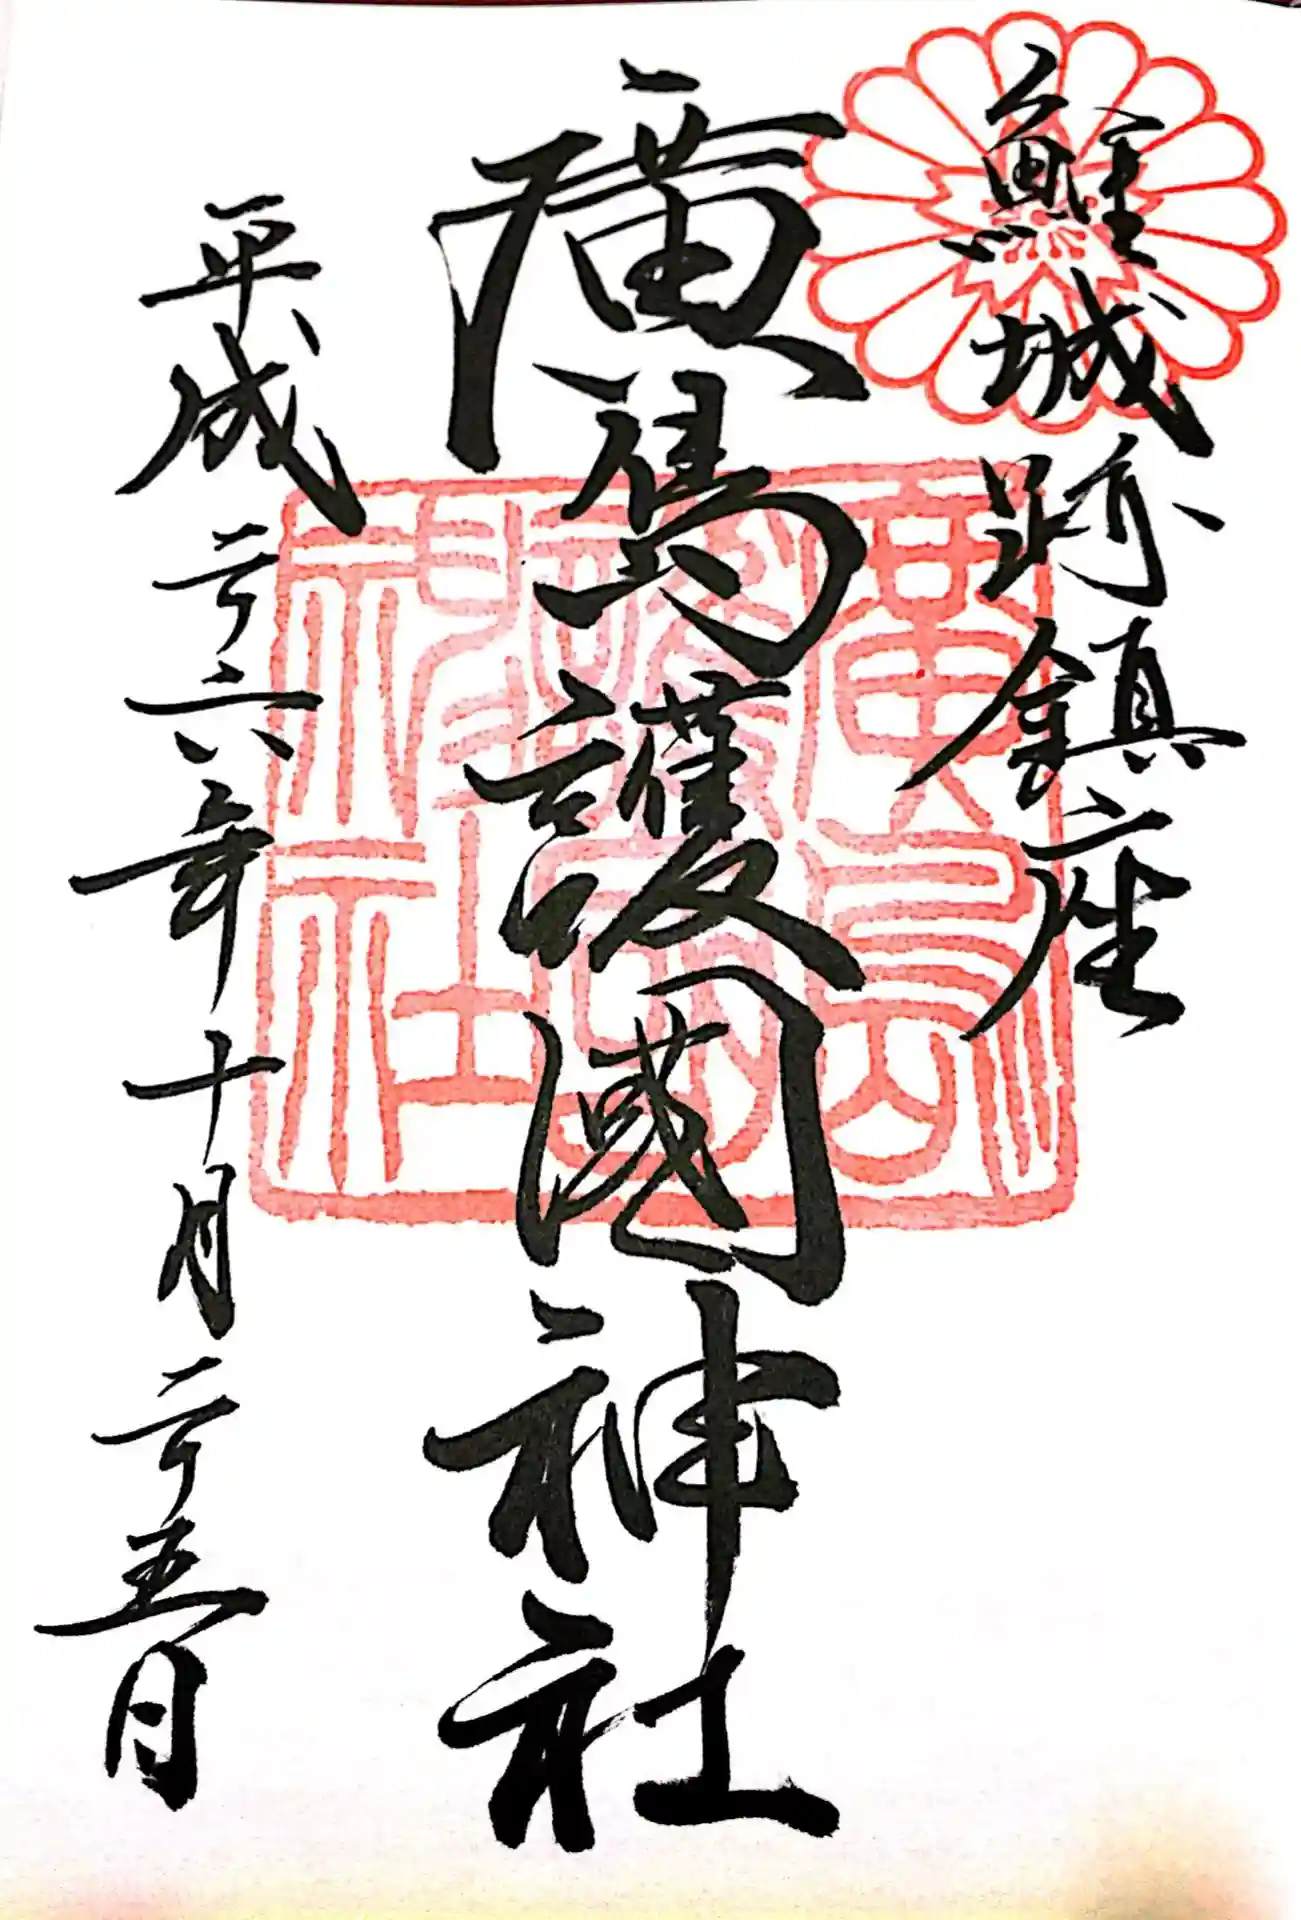 鯉城跡鎮座
廣島護國神社
平成二十六年十月二十五日
廣島
護國
神社